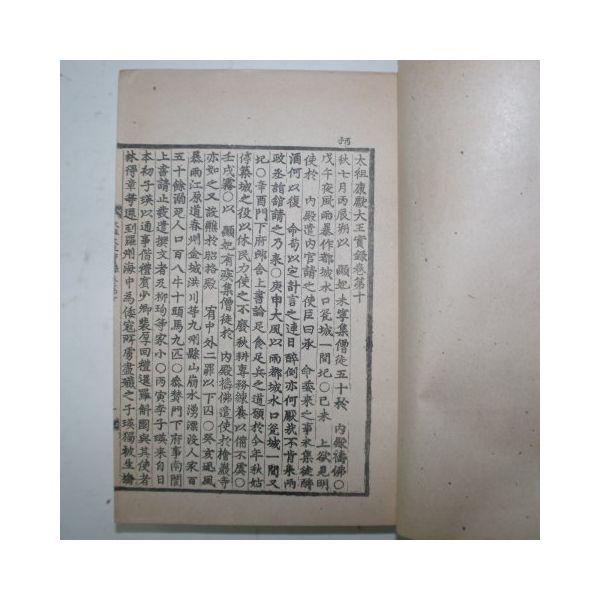 太祖康獻大王實錄卷第十
秋七月丙辰朔以 顯妃未寧集僧徒五十於 內殿禱佛○
戊午夜風雨暴作都城水口瓮城一間圮○己未 上欲見明
使於 內殿遣內官請之使臣曰承 命委來之事未集徒醉
酒何以復 命苟以定計言之連日醉倒亦何厭哉不肯來兩
政丞詣館請之乃來○庚申大風以雨都城水口瓮城一間又
圮○辛酉門下府郎舍上書論足食足兵之道願於今年秋姑
停築城之役以休民力使之不廢秋耕專務練養以備不虞○
壬戌霧○以 顯妃有疾集僧徒於 內殿禱佛遣使於檜巖寺
亦如之又設醮於昭格殿 宥中外二罪以下囚○癸亥迅風
暴雨江原道春州金城洪川等九州縣山崩水湧漂沒人家百
五十餘溺死人口百八牛十頭馬九匹○參贊門下府事南誾
上書請止裁遣撰文者及柳珣等家小○丙寅李子瑛來自日
本初子瑛以通事偕禮賓少卿裴厚回禮暹羅斛國與其使者
林得章等還到羅州海中爲倭寇所虜盡殲之子瑛獨被生擒